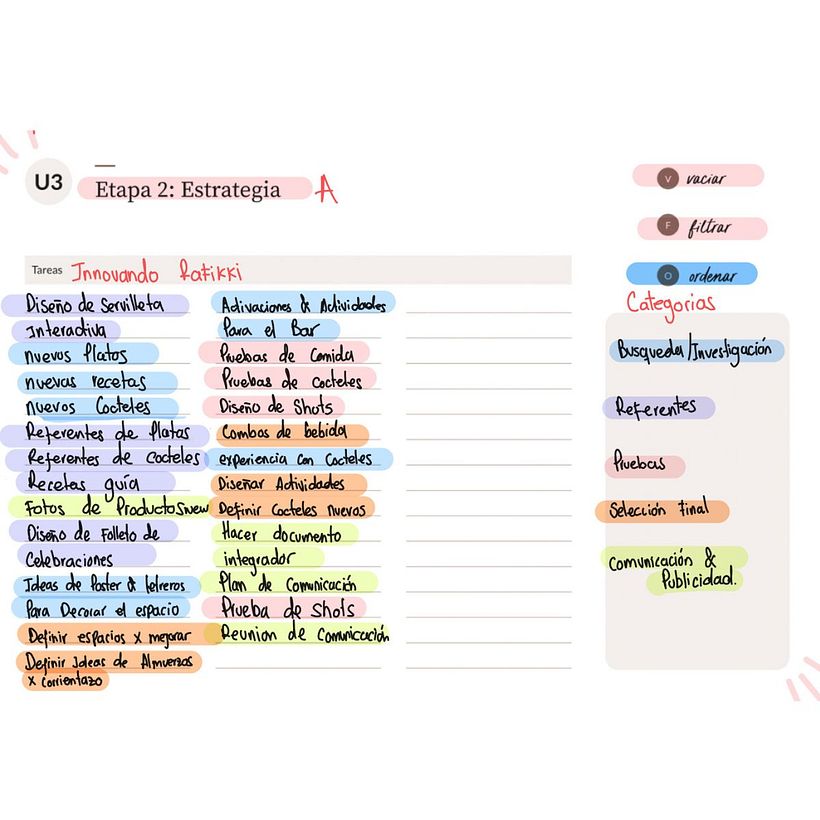 U3
Etapa 2: Estrategia A
Tareas Innovando Rafikki
Diseño de Servilleta
Interactiva
nuevos Platos
nuevas recetas
nuevos Cocteles
Referentes de Platos
Referentes de cocteles
Recetas guía
Fotos de Productos new
Diseño de Folleto de
Celebraciones
Ideas de Poster & letreros
Para Decorar el espacio
Definir espacios x mejorar
Definir Ideas de Almuerzos
x corrientazo
Activaciones & Actividades
Para el Bar
Pruebas de Comida
Pruebas de cocteles
Diseño de Shots
Combos de bebida
experiencia con Cocteles
Diseñar Actividades
Definir Cocteles nuevos
Hacer documento
integrador
Plan de Comunicación
Prueba de Shots
Reunion de Comunicación
V vaciar
F filtrar
O ordenar
Categorias
Busqueda/Investigación
Referentes
Pruebas
Selección final
Comunicación &
Publicidad.